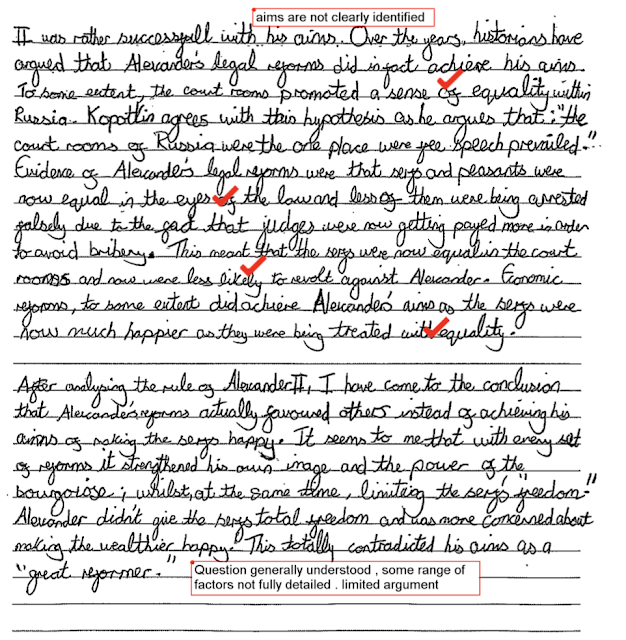 aims are not clearly identified
II was rather successfull with his aims. Over the years, historians have
argued that Alexander's legal reforms did infact achieve his aims.
To some extent, the court rooms promoted a sense of equality within
Russia. Kopottin agrees with this hypothesis as he argues that: "the
court rooms of Russia were the one place were free speech prevailed."
Evidence of Alexander's legal reforms were that serfs and peasants were
now equal in the eyes of the law and less of them were being arrested
falsely due to the fact that judges were now getting payed more in order
to avoid bribery. This meant that the serfs were now equal in the court
rooms and now were less likely to revolt against Alexander. Economic
reforms, to some extent did achieve Alexander's aims as the serfs were
now much happier as they were being treated with equality.
After analysing the rule of Alexander II, I have come to the conclusion
that Alexander's reforms actually favoured others instead of achieving his
aims of making the serfs happy. It seems to me that with every set
of reforms it strengthened his own image and the power of the
bourgoise; whilst, at the same time, limiting the serf's "freedom."
Alexander didn't give the serfs total freedom and was more concerned about
making the wealthier happy. This totally contradicted his aims as a
"great reformer."
Question generally understood , some range of
factors not fully detailed . limited argument